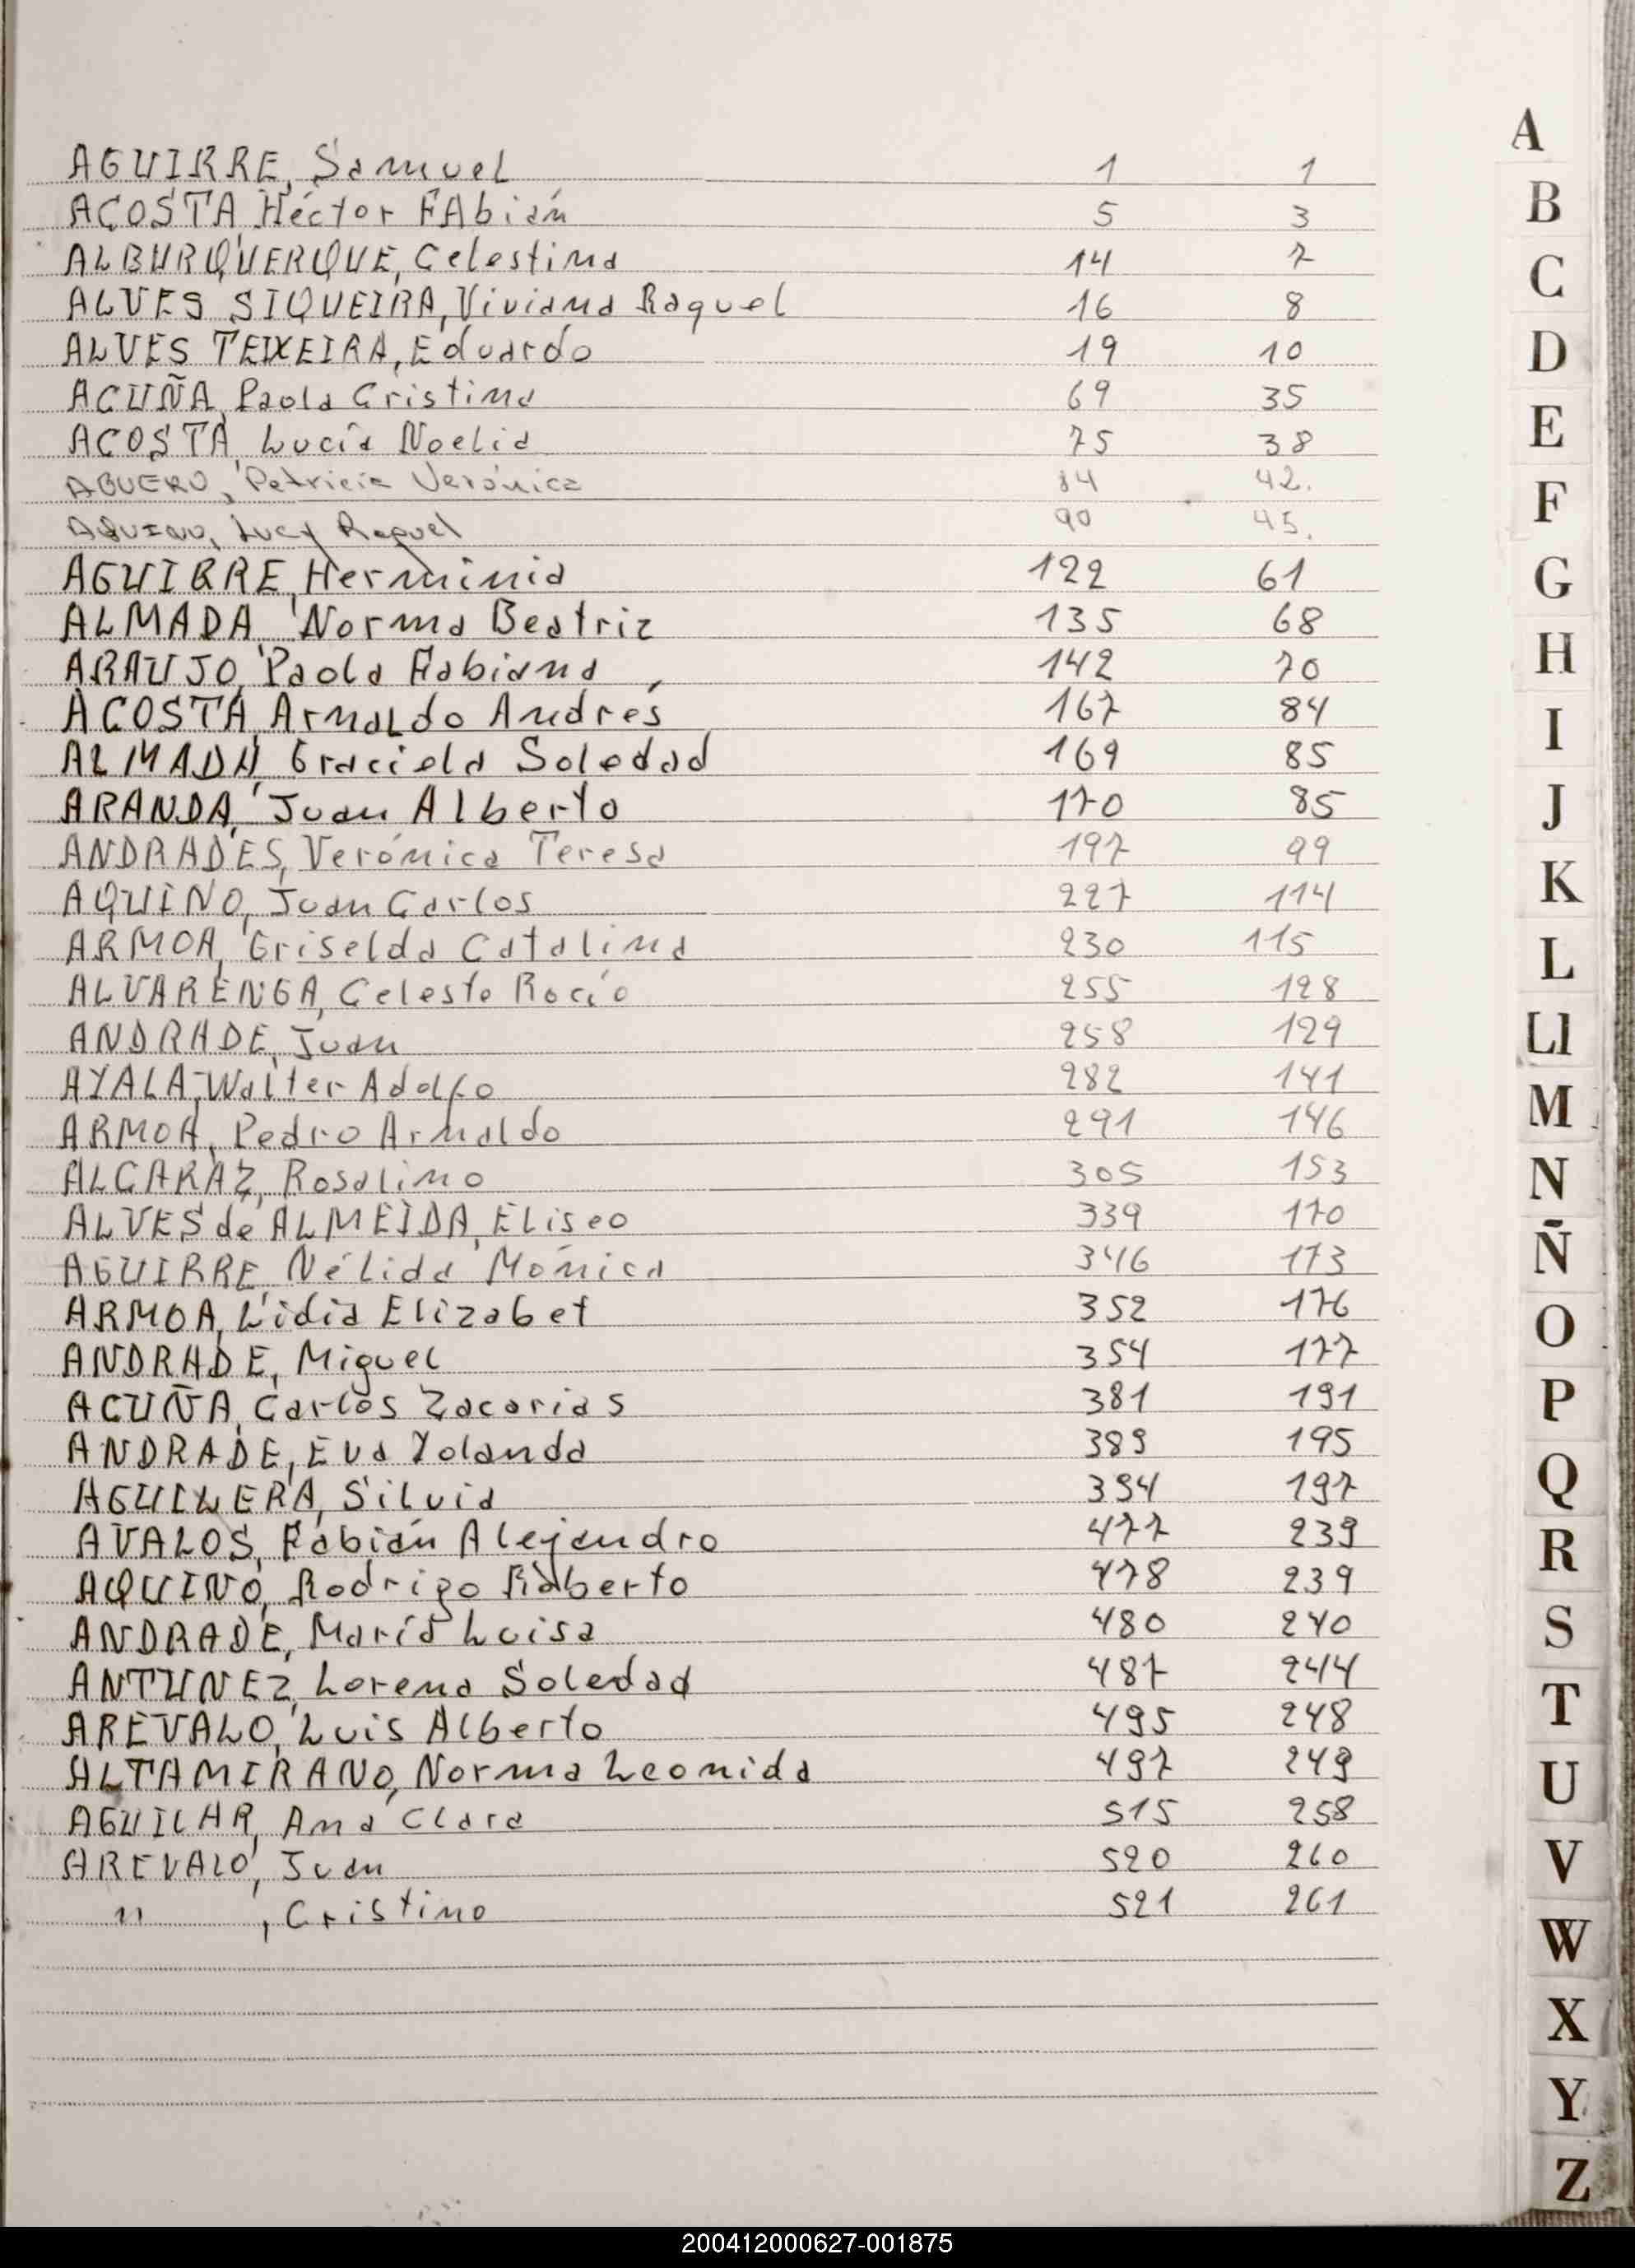 AGUIRRE, Samuel 1 1
ACOSTA, Héctor FAbián 5 3
ALBURQUERQUE, Celestina 14 7
ALVES SIQUEIRA, Viviana Raquel 16 8
ALVES TEIXEIRA, Eduardo 19 10
ACUÑA, Paola Cristina 69 35
ACOSTA, Lucía Noelia 75 38
AGUERO, Patricia Verónica 84 42.
AQUINO, Lucy Raquel 90 45.
AGUIRRE, Herminia 122 61
ALMADA, Norma Beatriz 135 68
ARAUJO, Paola Fabiana 142 70
ACOSTA, Arnaldo Andrés 167 84
ALMADA, Graciela Soledad 169 85
ARANDA, Juan Alberto 170 85
ANDRADES, Verónica Teresa 197 99
AQUINO, Juan Carlos 227 114
ARMOA, Griselda Catalina 230 115
ALVARENGA, Celeste Rocío 255 128
ANDRADE, Juan 258 129
AYALA, Walter Adolfo 282 141
ARMOA, Pedro Arnaldo 291 146
ALCARAZ, Rosalino 305 153
ALVES de ALMEIDA, Eliseo 339 170
AGUIRRE, Nélida Mónica 346 173
ARMOA, Lidia Elizabet 352 176
ANDRADE, Miguel 354 177
ACUÑA, Carlos Zacarias 381 191
ANDRADE, Eva Yolanda 389 195
AGUILERA, Silvia 394 197
AVALOS, Fabián Alejandro 477 239
AQUINO, Rodrigo Roberto 478 239
ANDRADE, María Luisa 480 240
ANTUNEZ, Lorena Soledad 487 244
AREVALO, Luis Alberto 495 248
ALTAMIRANO, Norma Leonida 497 249
AGUILAR, Ana Clara 515 258
AREVALO, Juan 520 260
" , Cristino 521 261
A
B
C
D
E
F
G
H
I
J
K
L
Ll
M
N
Ñ
O
P
Q
R
S
T
U
V
W
X
Y
Z
200412000627-001875